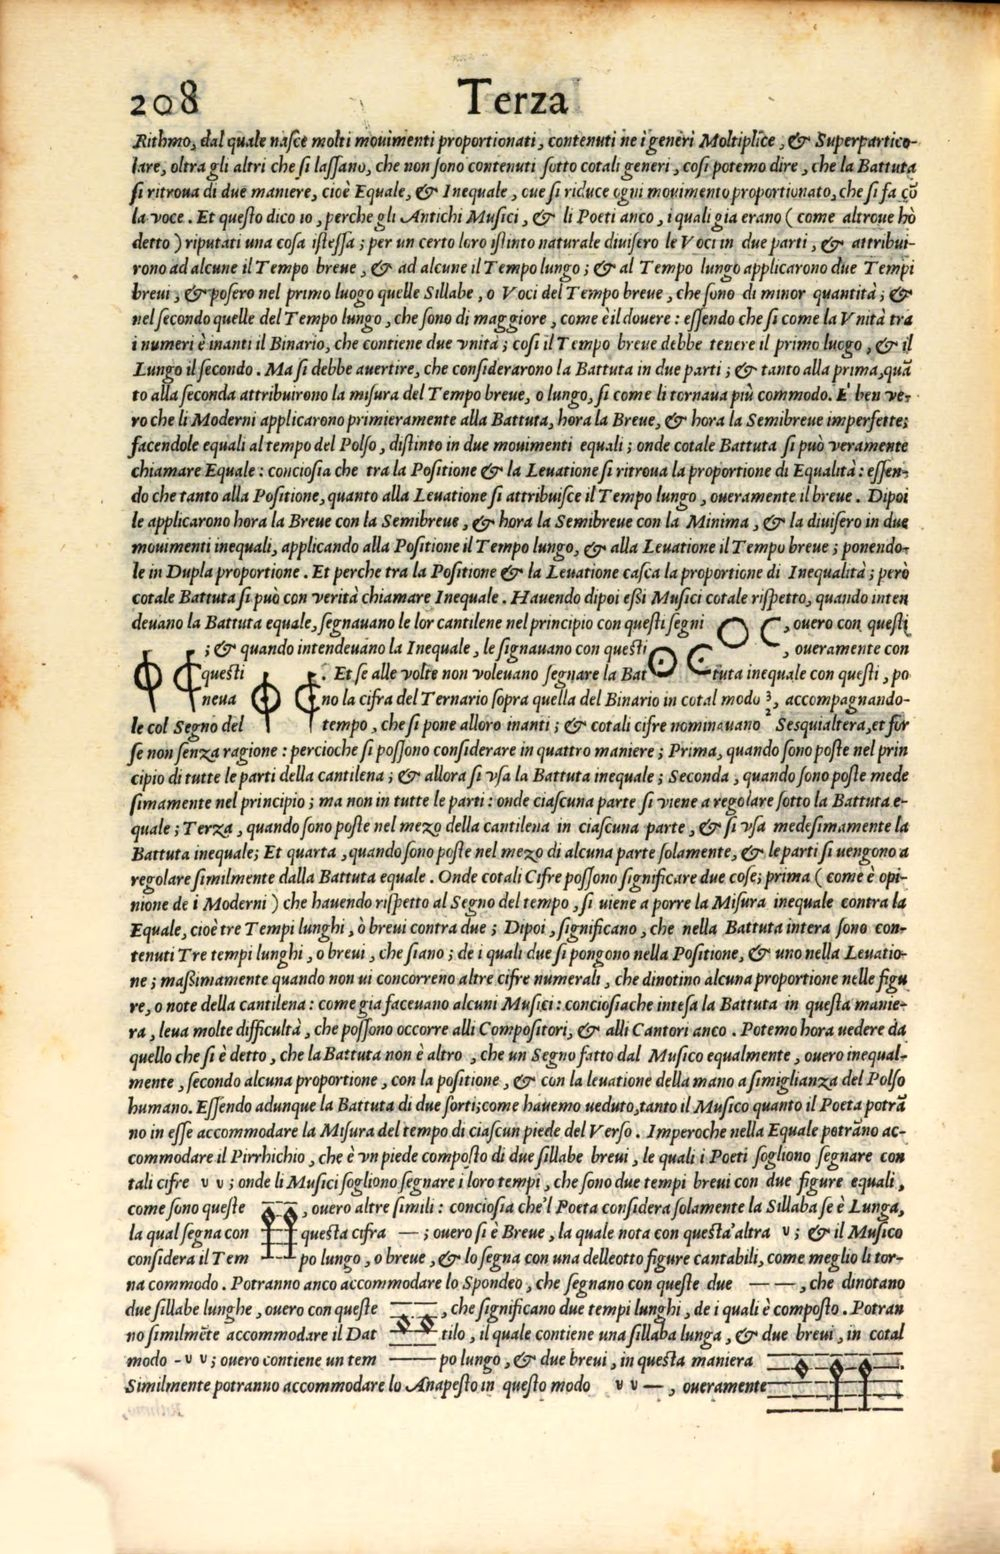 208 Terza
Rithmo, dal quale nasce molti mouimenti proportionati, contenuti ne i generi Moltiplice, & Superpartico-
lare, oltra gli altri che si lassano, che non sono contenuti sotto cotali generi, cosi potemo dire, che la Battuta
si ritroua di due maniere, cioè Equale, & Inequale, oue si riduce ogni mouimento proportionato, che si fa cō
la voce. Et questo dico io, perche gli Antichi Musici, & li Poeti anco, i quali gia erano (come altroue hò
detto) riputati una cosa istessa; per un certo loro istinto naturale diuisero le Voci in due parti, & attribui-
rono ad alcune il Tempo breue, & ad alcune il Tempo lungo; & al Tempo lungo applicarono due Tempi
breui, & posero nel primo luogo quelle Sillabe, o Voci del Tempo breue, che sono di minor quantità; &
nel secondo quelle del Tempo lungo, che sono di maggiore, come è il douere: essendo che si come la Vnità tra
i numeri è inanti il Binario, che contiene due vnità; cosi il Tempo breue debbe tenere il primo luogo, & il
Lungo il secondo. Ma si debbe auertire, che considerarono la Battuta in due parti; & tanto alla prima, quā
to alla seconda attribuirono la misura del Tempo breue, o lungo, si come li tornaua più commodo. E' ben ve-
ro che li Moderni applicarono primieramente alla Battuta, hora la Breue, & hora la Semibreue imperfette;
facendole equali al tempo del Polso, distinto in due mouimenti equali; onde cotale Battuta si può veramente
chiamare Equale: conciosia che tra la Positione & la Leuatione si ritroua la proportione di Equalità: essen-
do che tanto alla Positione, quanto alla Leuatione si attribuisce il Tempo lungo, oueramente il breue. Dipoi
le applicarono hora la Breue con la Semibreue, & hora la Semibreue con la Minima, & la diuisero in due
mouimenti inequali, applicando alla Positione il Tempo lungo, & alla Leuatione il Tempo breue; ponendo-
le in Dupla proportione. Et perche tra la Positione & la Leuatione casca la proportione di Inequalità; però
cotale Battuta si può con verità chiamare Inequale. Hauendo dipoi essi Musici cotale rispetto, quando inten
deuano la Battuta equale, segnauano le lor cantilene nel principio con questi segni , ouero con questi
; & quando intendeuano la Inequale, le signauano con questi , oueramente con
questi . Et se alle volte non voleuano segnare la Bat tuta inequale con questi, po
neua no la cifra del Ternario sopra quella del Binario in cotal modo 3/2, accompagnando-
le col Segno del tempo, che si pone alloro inanti; & cotali cifre nominauano Sesquialtera, et for
se non senza ragione: percioche si possono considerare in quattro maniere; Prima, quando sono poste nel prin
cipio di tutte le parti della cantilena; & allora si vsa la Battuta inequale; Seconda, quando sono poste mede
simamente nel principio; ma non in tutte le parti: onde ciascuna parte si viene a regolare sotto la Battuta e-
quale; Terza, quando sono poste nel mezo della cantilena in ciascuna parte, & si vsa medesimamente la
Battuta inequale; Et quarta, quando sono poste nel mezo di alcuna parte solamente, & le parti si uengono a
regolare similmente dalla Battuta equale. Onde cotali Cifre possono significare due cose; prima (come è opi-
nione de i Moderni) che hauendo rispetto al Segno del tempo, si viene a porre la Misura inequale contra la
Equale, cioè tre Tempi lunghi, ò breui contra due; Dipoi, significano, che nella Battuta intera sono con-
tenuti Tre tempi lunghi, o breui, che siano; de i quali due si pongono nella Positione, & uno nella Leuatio-
ne; massimamente quando non ui concorreno altre cifre numerali, che dinotino alcuna proportione nelle figu
re, o note della cantilena: come gia faceuano alcuni Musici: conciosiache intesa la Battuta in questa manie-
ra, leua molte difficultà, che possono occorre alli Compositori, & alli Cantori anco. Potemo hora uedere da
quello che si è detto, che la Battuta non è altro, che un Segno fatto dal Musico equalmente, ouero inequal-
mente, secondo alcuna proportione, con la positione, & con la leuatione della mano a simiglianza del Polso
humano. Essendo adunque la Battuta di due sorti; come hauemo ueduto, tanto il Musico quanto il Poeta potrā
no in esse accommodare la Misura del tempo di ciascun piede del Verso. Imperoche nella Equale potrāno ac-
commodare il Pirrhichio, che è vn piede composto di due sillabe breui, le quali i Poeti sogliono segnare con
tali cifre v v; onde li Musici sogliono segnare i loro tempi, che sono due tempi breui con due figure equali,
come sono queste , ouero altre simili: conciosia che'l Poeta considera solamente la Sillaba se è Lunga,
la qual segna con questa cifra —; ouero si è Breue, la quale nota con questa altra v; & il Musico
considera il Tem po lungo, o breue, & lo segna con una delle otto figure cantabili, come meglio li tor-
na commodo. Potranno anco accommodare lo Spondeo, che segnano con queste due — —, che dinotano
due sillabe lunghe, ouero con queste , che significano due tempi lunghi, de i quali è composto. Potran
no similmēte accommodare il Dat tilo, il quale contiene una sillaba lunga, & due breui, in cotal
modo - v v; ouero contiene un tem po lungo, & due breui, in questa maniera
Similmente potranno accommodare lo Anapesto in questo modo v v —, oueramente